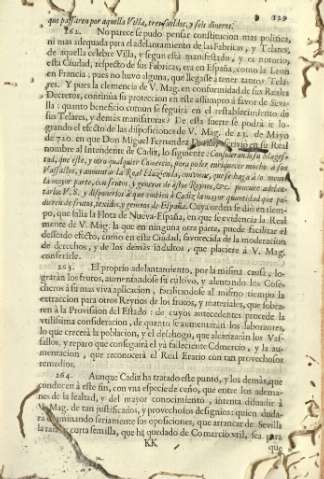 que passaren por aquella Villa, tres sueldos, y seis dineros.
9 129
262. No parece se pudo pensar constitucion mas politica,
ni mas adequada para el adelantamiento de las Fabricas, y Telares,
de aquella celebre Villa, segun està manifestado, y es notorio,
esta Ciudad, respecto de sus Fabricas, era en España, como la Leon
en Francia; pues no huvo alguna, que llegasse à tener tantos Tela-
res. Y pues la clemencia de V. Mag. en conformidad de sus Reales
Decretos, continùa su proteccion en este assumpto à favor de Sevi-
lla: quanto beneficio comun se seguirà en el restablecimiento de
sus Telares, y demàs manifatturas? De esta suerte se podrà ir lo-
grando el efecto de las disposiciones de V. Mag. de 23. de Mayo
de 720. en que Don Miguel Fernandez escrivio en su Real
nombre al Intendente de Cadiz, lo siguiente: Considerando su Mages-
tad, que este, y otro qualquier Comercio, para poder enriquecer mucho à sus
Vassallos, y aumentar la Real Hazienda, conviene, que se haga à lo menos
la mayor parte, con frutos, y generos de estos Reynos, &c. procure adelan-
tarlo V.S. y disponerlo à que embien à Cadiz la mayor quantidad que pu-
dieren de frutos, texidos, y generos de España. Cuya orden se diò en tiem-
po, que salia la Flota de Nueva-España, en que se evidencia la Real
mente de V. Mag. la que en ninguna otra parte, puede facilitar el
desseado efecto, como en esta Ciudad, favorecida de la moderacion
de derechos, y de los demàs indultos, que placiere à V. Mag.
conferirle.
263. El propio adelantamiento, por la misma causa, lo-
gràran los frutos, aumentandose su cultivo, y alentando los Cose-
cheros à su mas viva aplicacion, facilitandose al mismo tiempo la
extraccion para otros Reynos de los frutos, y materiales, que sobra-
ren à la Provision del Estado: de cuyos antecedentes procede la
utilissima consideracion, de quanto se aumentaràn los labradores,
lo que crecerà la poblacion, y el desahogo, que alcanzaràn los Vas-
sallos, y reparo que conseguirà el yà falleciente Comercio, y la au-
mentacion, que reconocerà el Real Erario con tan provechosos
remedios.
264. Aunque Cadiz ha tratado este punto, y los demàs, que
conducen à este fin, con una especie de ceño, que entre los adema-
nes de la lealtad, y del mayor conocimiento, intenta disuadir à
V. Mag. de tan justificados, y provechosos designios: quien duda-
rà examinando seriamente sus oposiciones, que arrancar de Sevilla
la rara, y corta semilla, que ha quedado de Comercio util, sea para
KK
que